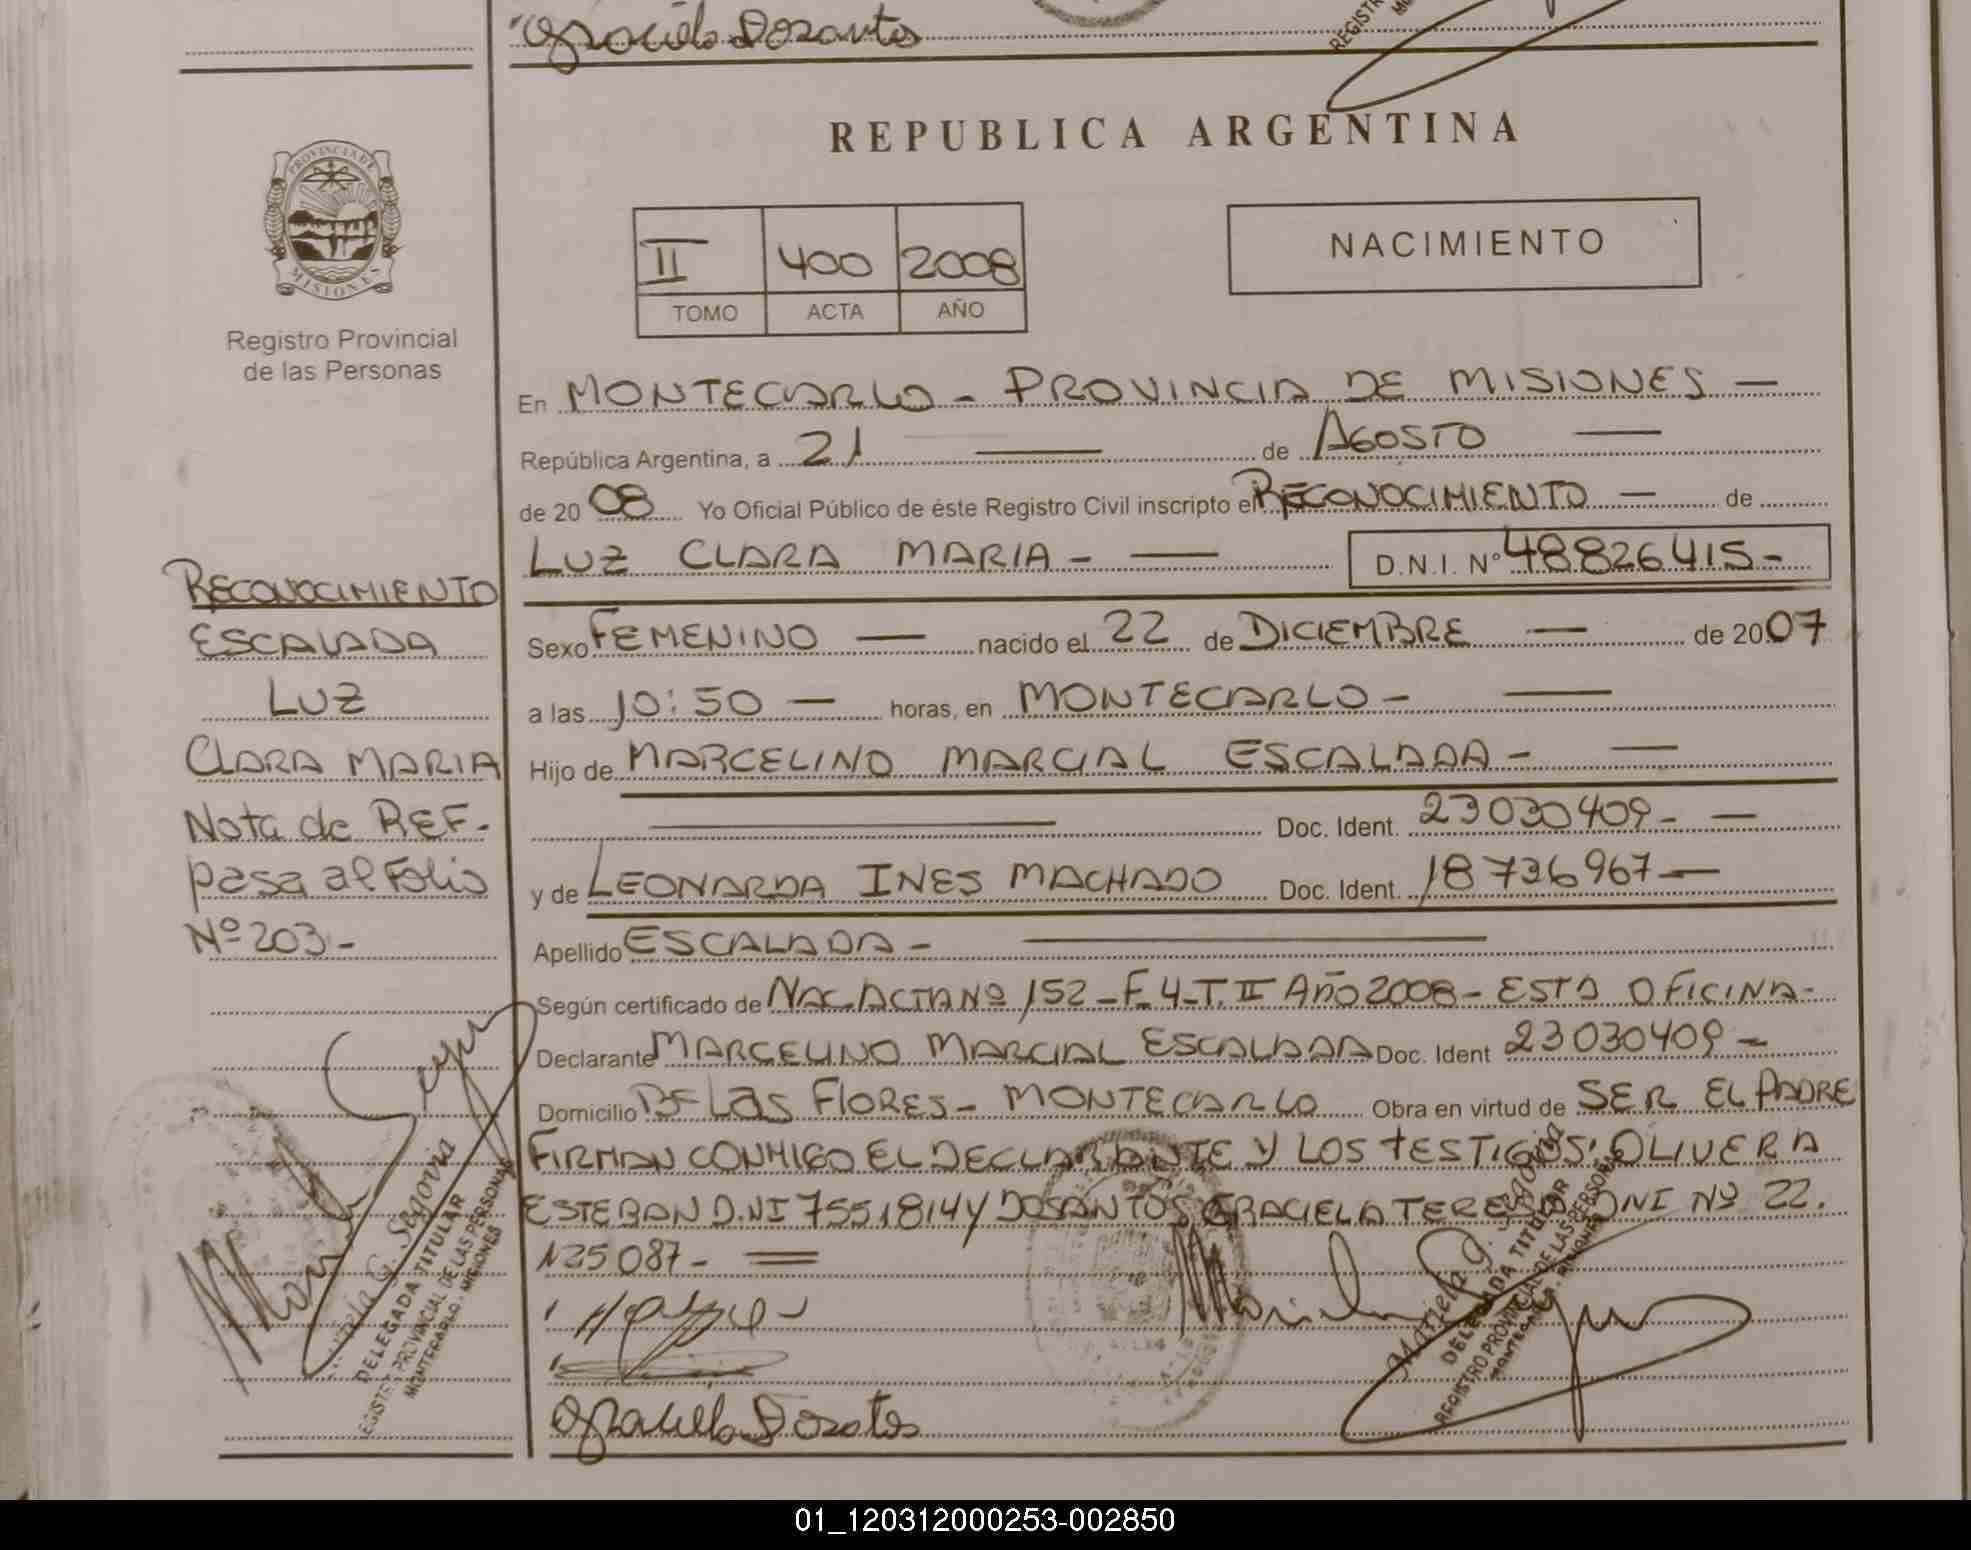 Graciela Dosantos
REPUBLICA ARGENTINA
PROVINCIA DE MISIONES
Registro Provincial
de las Personas
II 400 2008
TOMO ACTA AÑO
NACIMIENTO
En MONTECARLO - PROVINCIA DE MISIONES —
República Argentina, a 21 — de AGOSTO —
de 2008 Yo Oficial Público de éste Registro Civil inscripto el RECONOCIMIENTO — de
LUZ CLARA MARIA - — D.N.I. Nº 48826415-
Sexo FEMENINO — nacido el 22 de DICIEMBRE — de 2007
a las 10:50 — horas, en MONTECARLO - —
Hijo de MARCELINO MARCIAL ESCALADA - —
— Doc. Ident. 23030409- —
y de LEONARDA INES MACHADO Doc. Ident. 18736967 —
Apellido ESCALADA - —
Según certificado de NAC. ACTA Nº 152 - F. 4 - T. II AÑO 2008 - ESTA OFICINA-
Declarante MARCELINO MARCIAL ESCALADA Doc. Ident 23030409 -
Domicilio Bº LAS FLORES - MONTECARLO Obra en virtud de SER EL PADRE
FIRMAN CONMIGO EL DECLARANTE Y LOS TESTIGOS: OLIVERA
ESTEBAN D.NI 7551814 Y DOSANTOS GRACIELA TERESA DNI Nº 22.
125087- =
Graciela Dosantos
RECONOCIMIENTO
ESCALADA
LUZ
CLARA MARIA
Nota de REF-
pasa al Folio
Nº 203-
Mariela G. Segovia
DELEGADA TITULAR
REGISTRO PROVINCIAL DE LAS PERSONAS
MONTECARLO - MISIONES
Mariela G. Segovia
DELEGADA TITULAR
REGISTRO PROVINCIAL DE LAS PERSONAS
MONTECARLO - MISIONES
01_120312000253-002850